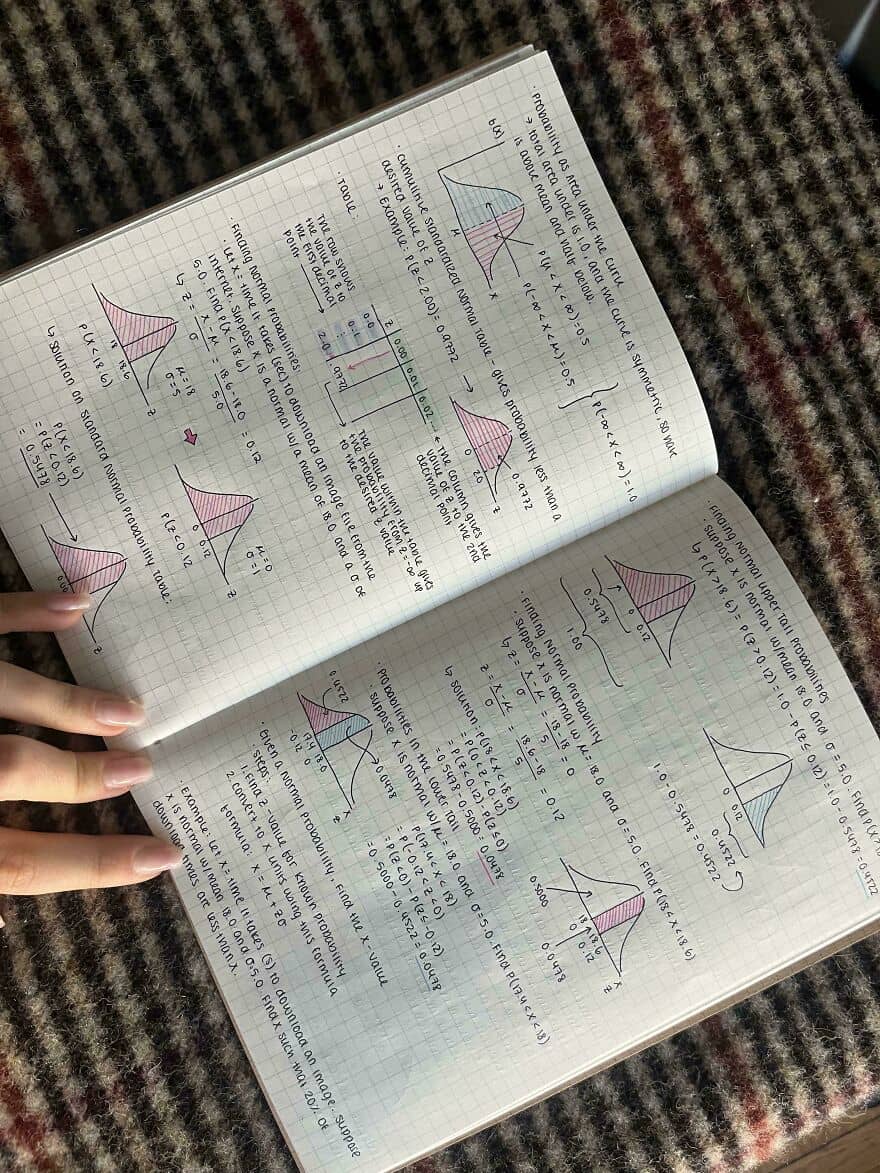 · probability as area under the curve
→ total area under is 1.0, and the curve is symmetric, so half
is above mean and half below.
f(x)
μ
x
P(μ < X < ∞) = 0.5
P(-∞ < X < μ) = 0.5
P(-∞ < X < ∞) = 1.0
· cumulitive standardized normal table - gives probability less than a
desired value of z
→ Example: P(Z < 2.00) = 0.9772
→
0.9772
0
2.0
z
· Table:
The row shows
the value of z to
the first decimal
point
z
0.00
0.01
0.02 ...
0.0
0.1
2.0
.9772
← The column gives the
value of z to the 2nd
decimal point
The value within the table gives
the probability from z = -∞ up
to the desired z value
· Finding normal probabilities:
· Let x = time it takes (sec) to download an image file from the
internet. Suppose x is a normal w/ a mean of 18.0 and a σ of
5.0. Find P(X < 18.6)
↳ z = X - μ / σ = 18.6 - 18.0 / 5.0 = 0.12
μ = 18
σ = 5
18
18.6
z
P(X < 18.6)
μ = 0
σ = 1
0
0.12
z
P(Z < 0.12)
↳ solution on standard normal probability table:
P(X < 18.6)
= P(Z < 0.12)
= 0.5478
z
· Finding normal upper tail probabilities
· suppose x is normal w/ mean 18.0 and σ = 5.0. Find P(X >
↳ P(X > 18.6) = P(Z > 0.12) = 1.0 - P(Z ≤ 0.12) = 1.0 - 0.5478 = 0.4522
0
0.12
z
0.5478
1.00
0
0.12
z
0.4522
1.0 - 0.5478 = 0.4522
· Finding normal probability
· suppose x is normal w μ = 18.0 and σ = 5.0. Find P(18 < X < 18.6)
↳ z = X - μ / σ = 18 - 18 / 5 = 0
z = X - μ / σ = 18.6 - 18 / 5 = 0.12
↳ solution: P(18 < X < 18.6)
= P(0 < Z < 0.12)
= P(Z < 0.12) - P(Z ≤ 0)
= 0.5478 - 0.5000 = 0.0478
18
18.6
x
0
0.12
z
0.5000
0.0478
· Probabilities in the lower tail
· suppose x is normal w/ μ = 18.0 and σ = 5.0. Find P(17.4 < X < 18)
P(17.4 < X < 18)
= P(-0.12 < Z < 0)
= P(Z < 0) - P(Z ≤ -0.12)
= 0.5000 - 0.4522 = 0.0478
0.4522
0.0478
17.4
18.0
x
-0.12
0
z
· Given a normal probability, find the x-value
· steps:
1. Find z-value for known probability
2. convert to x units using this formula
formula: x = μ + zσ
· Example: Let x = time it takes (s) to download an image. suppose
x is normal w/ mean 18.0 and σ = 5.0. Find x such that 20% of
download times are less than x.